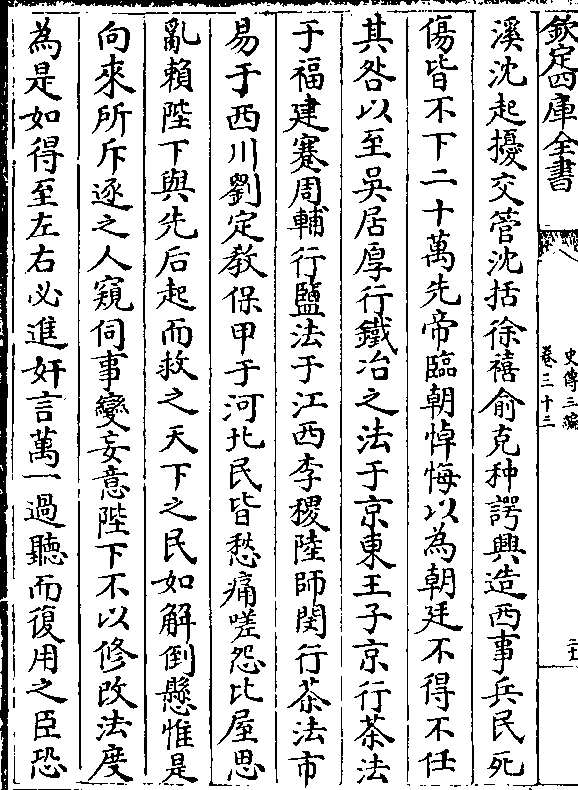 欽定四庫全書
史傳三編
卷三十三
溪沈起擾交管沈括徐禧俞充种諤興造西事兵民死
傷皆不下二十萬先帝臨朝悼悔以為朝廷不得不任
其咎以至吳居厚行鐵冶之法于京東王子京行茶法
于福建蹇周輔行鹽法于江西李稷陸師閔行茶法市
易于西川劉定教保甲于河北民皆愁痛嗟怨比屋思
亂賴陛下與先后起而救之天下之民如解倒懸惟是
向來所斥逐之人窺伺事變妄意陛下不以修改法度
為是如得至左右必進奸言萬一過聽而復用之臣恐